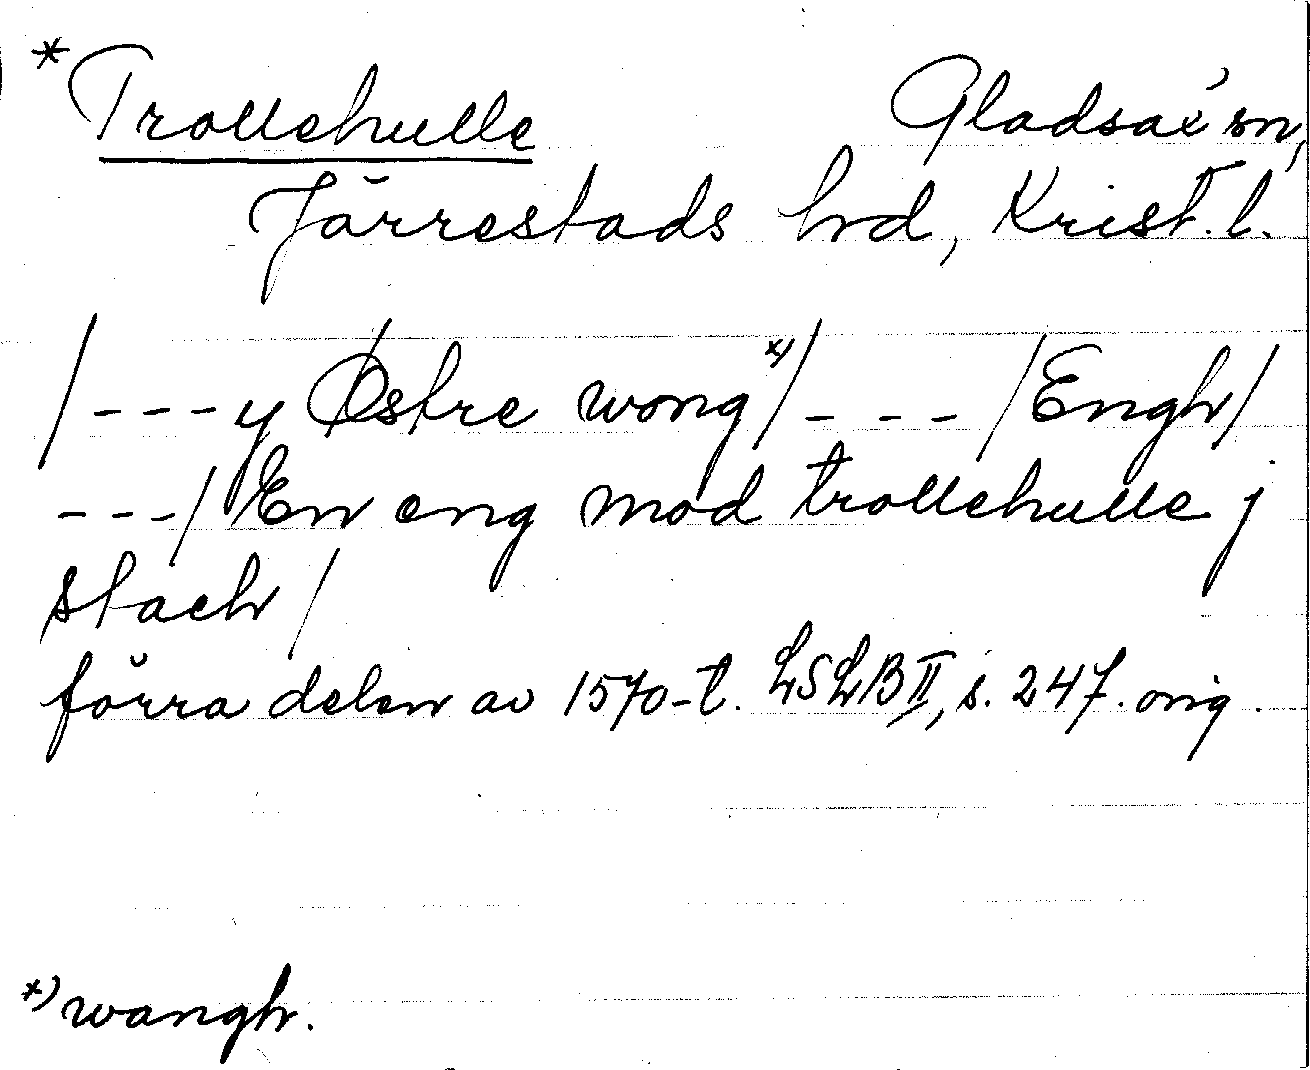 *Trollehulle Gladsax' sn,
Järrestads hrd, Krist. l.
/---y Østre wong*)/--- /Engh/
---/ En eng mod trollehulle j
stach /
förra delen av 1570-t. LSLB II, s. 247. orig.
*) wangh.